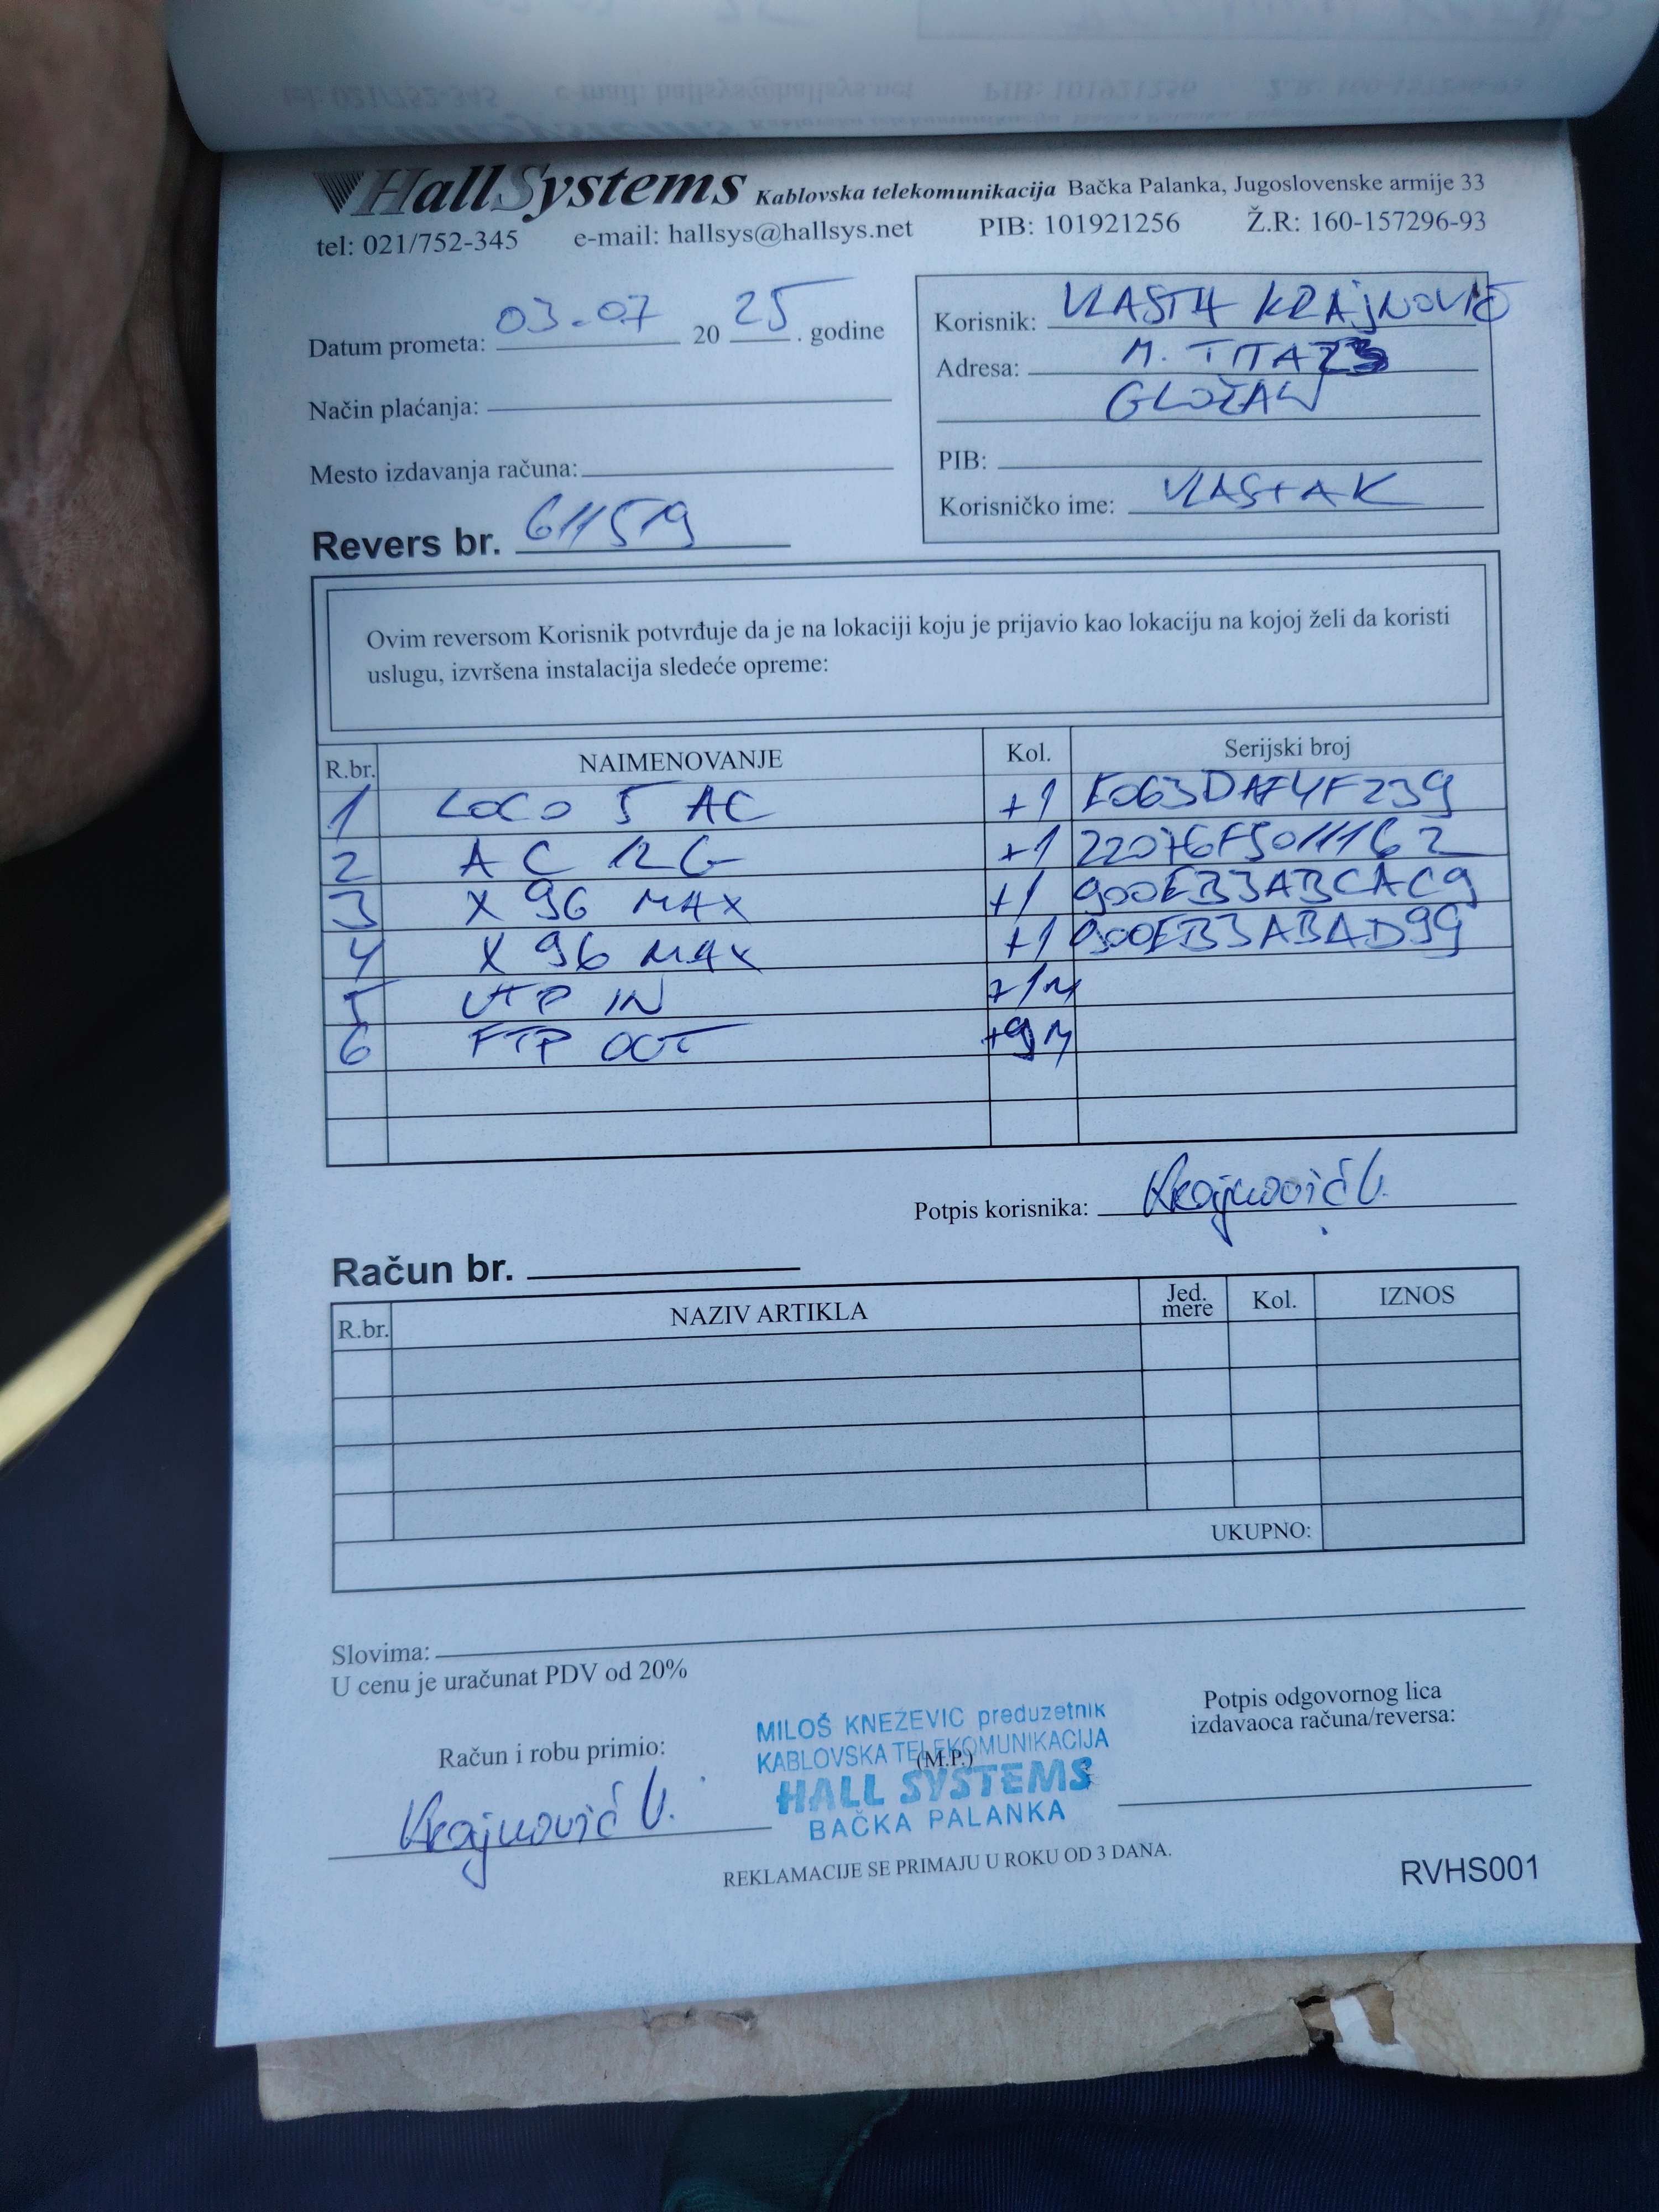 HallSystems Kablovska telekomunikacija Bačka Palanka, Jugoslovenske armije 33
tel: 021/752-345 e-mail: hallsys@hallsys.net PIB: 101921256 Ž.R: 160-157296-93
Datum prometa: 03.07 20 25 . godine
Način plaćanja:
Mesto izdavanja računa:
Revers br. 611519
Korisnik: VLASTA KRAJNOVIĆ
Adresa: M. TITA
GLOŽAN
PIB:
Korisničko ime: VLASTAK
Ovim reversom Korisnik potvrđuje da je na lokaciji koju je prijavio kao lokaciju na kojoj želi da koristi
uslugu, izvršena instalacija sledeće opreme:
R.br. NAIMENOVANJE Kol. Serijski broj
1 LOCO 5 AC +1
2 AC 12G +1
3 X 96 MAX +1 900EB3ABCAC9
4 X 96 MAX +1 900EB3ABAD99
5 UTP IN +1M
6 FTP OUT +9M
Potpis korisnika: Krajnović V.
Račun br.
R.br. NAZIV ARTIKLA Jed. mere Kol. IZNOS
UKUPNO:
Slovima:
U cenu je uračunat PDV od 20%
Račun i robu primio:
Krajnović V.
MILOŠ KNEŽEVIĆ preduzetnik
KABLOVSKA TELEKOMUNIKACIJA
(M.P.)
HALL SYSTEMS
BAČKA PALANKA
Potpis odgovornog lica
izdavaoca računa/reversa:
REKLAMACIJE SE PRIMAJU U ROKU OD 3 DANA.
RVHS001